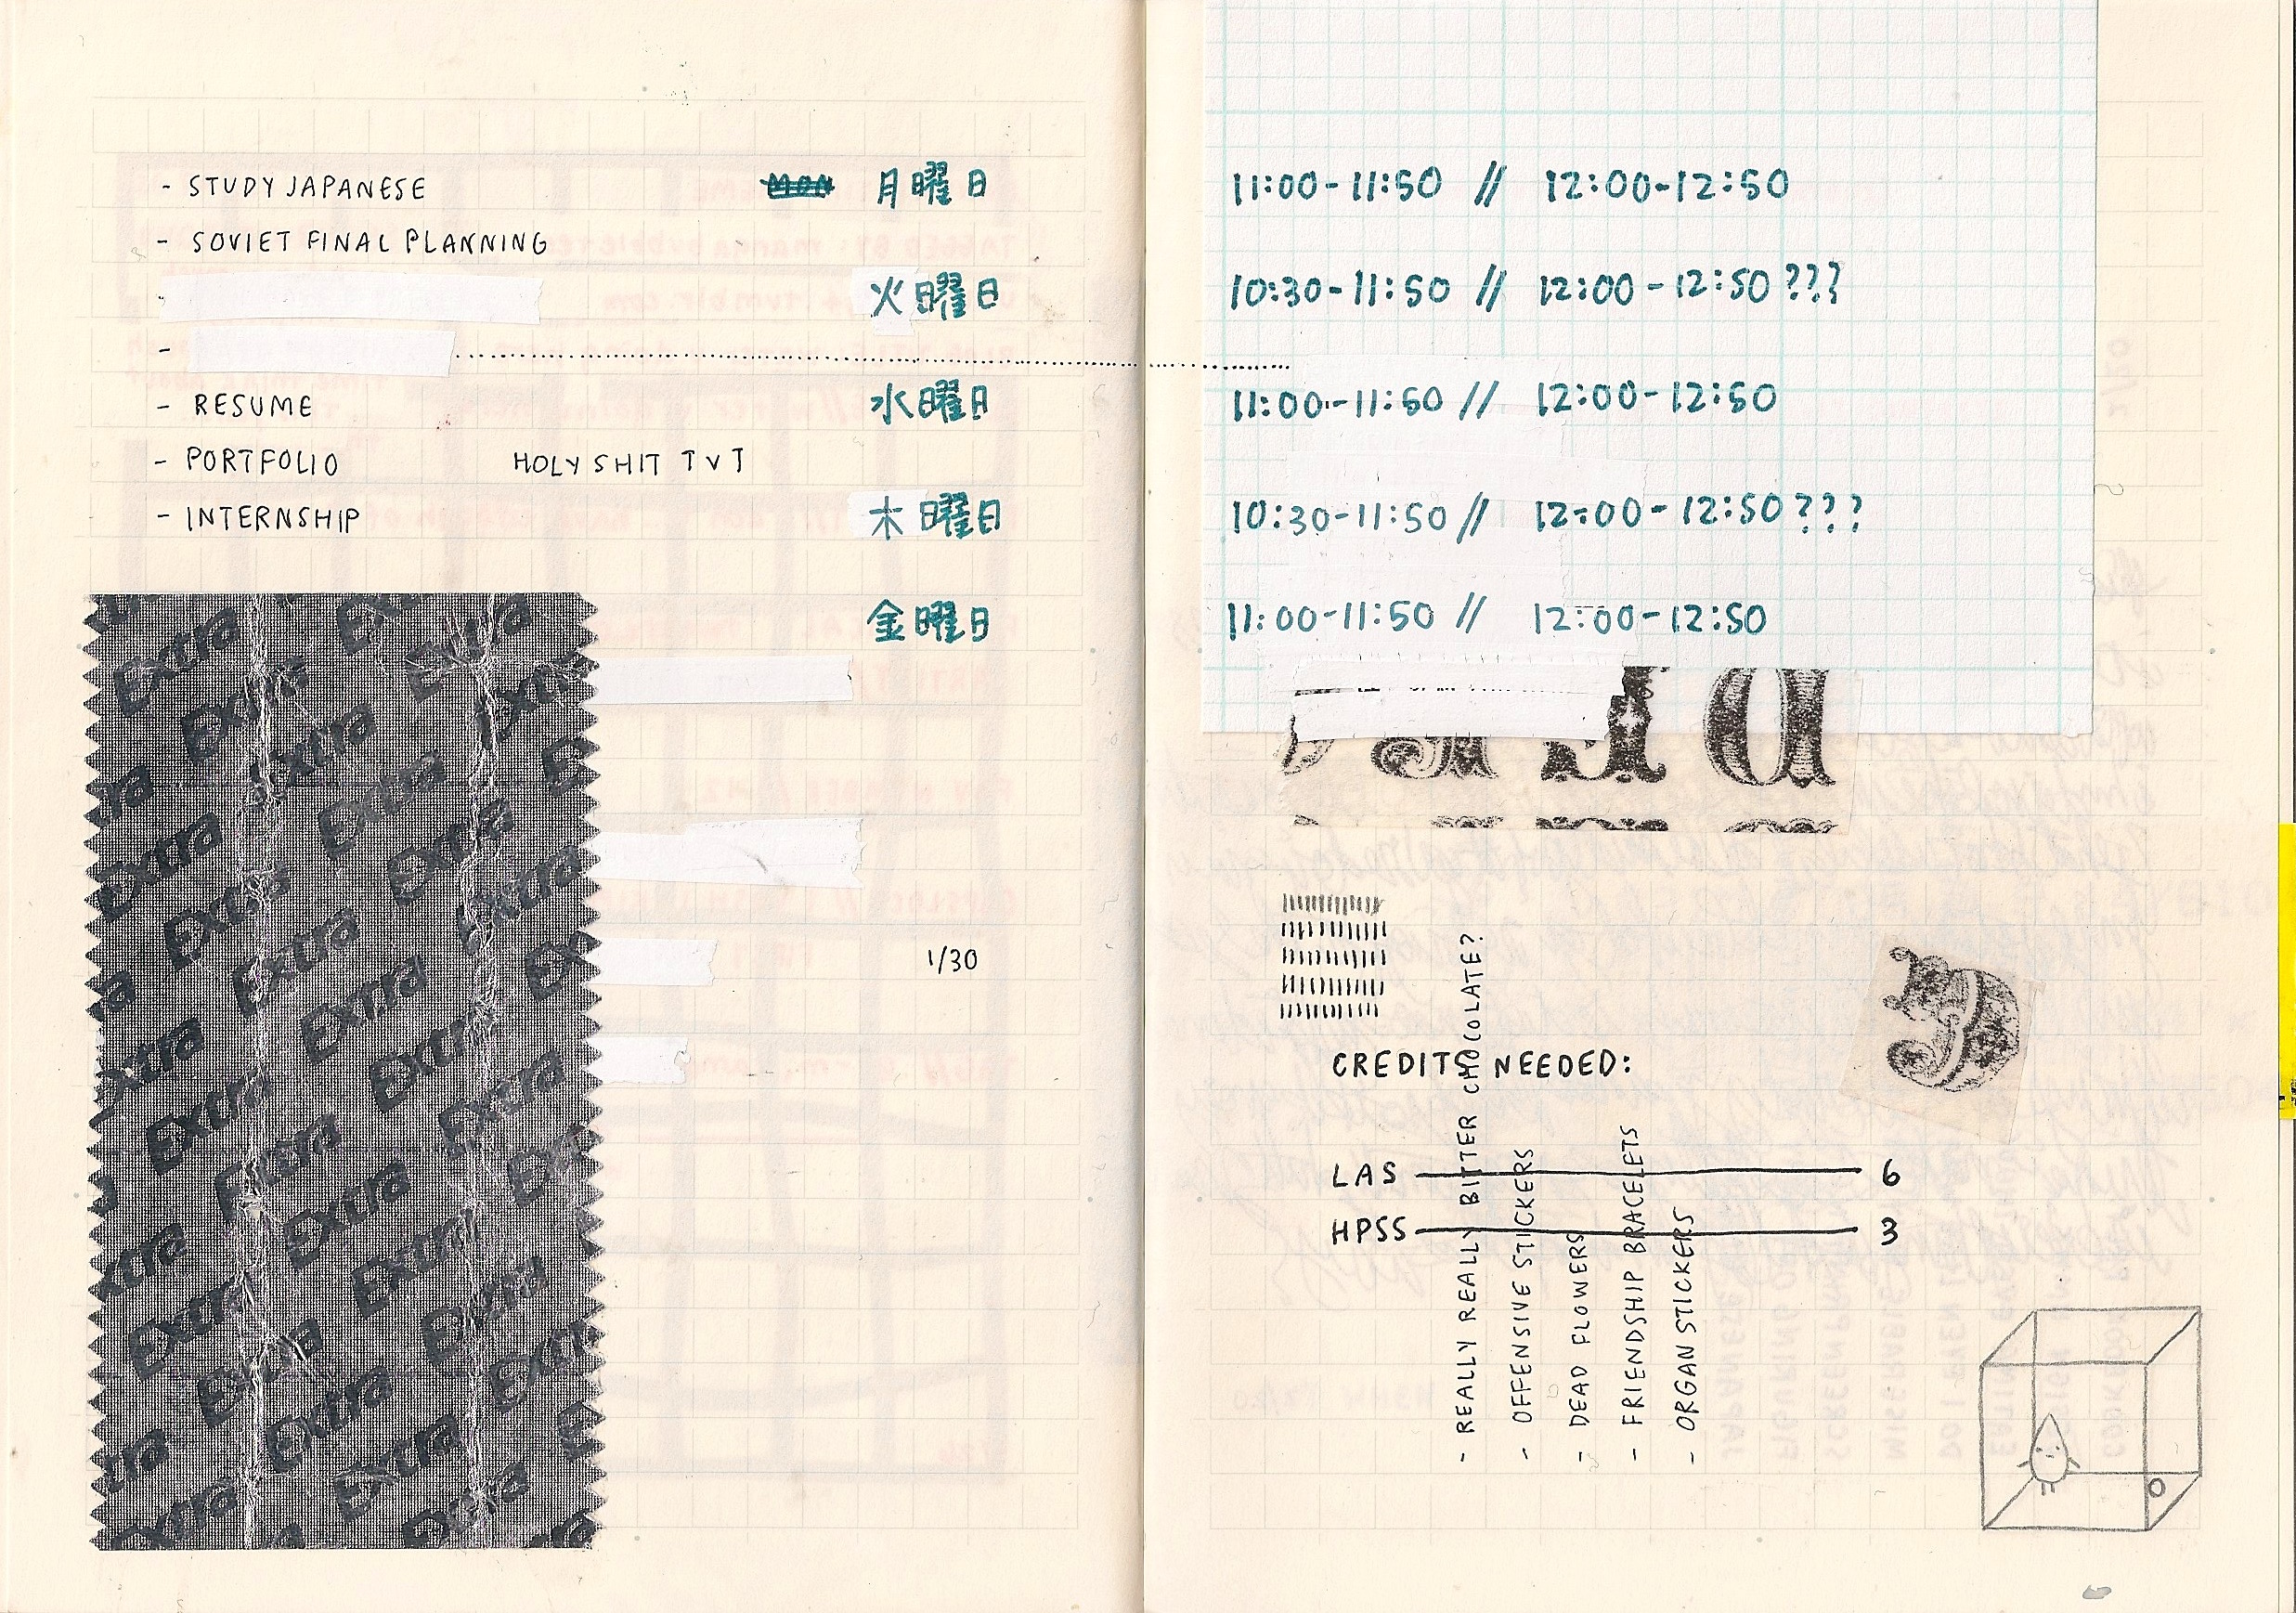 - STUDY JAPANESE
- SOVIET FINAL PLANNING
-
- RESUME
- PORTFOLIO HOLY SHIT TVT
- INTERNSHIP
MON 月曜日 11:00-11:50 // 12:00-12:50
火曜日 10:30-11:50 // 12:00-12:50 ???
水曜日 11:00-11:50 // 12:00-12:50
木曜日 10:30-11:50 // 12:00-12:50 ???
金曜日 11:00-11:50 // 12:00-12:50
Extra
1/30
CREDITS NEEDED:
LAS 6
HPSS 3
- REALLY REALLY BITTER CHOCOLATE?
- OFFENSIVE STICKERS
- DEAD FLOWERS
- FRIENDSHIP BRACELETS
- ORGAN STICKERS